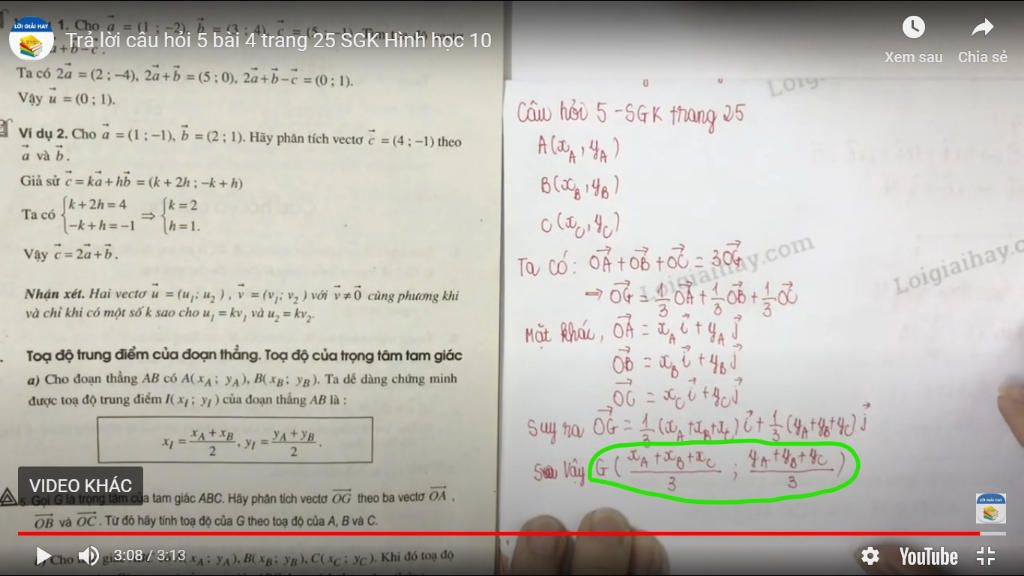 LỜI GIẢI HAY
Trả lời câu hỏi 5 bài 4 trang 25 SGK Hình học 10
Xem sau
Chia sẻ
1. Cho a⃗ = (1 ; −2), b⃗ = (3 ; 4), c⃗ = (5 ;
Ta có 2a⃗ = (2 ; −4), 2a⃗ + b⃗ = (5 ; 0), 2a⃗ + b⃗ − c⃗ = (0 ; 1).
Vậy u⃗ = (0 ; 1).
Ví dụ 2. Cho a⃗ = (1 ; −1), b⃗ = (2 ; 1). Hãy phân tích vectơ c⃗ = (4 ; −1) theo
a⃗ và b⃗ .
Giả sử c⃗ = ka⃗ + hb⃗ = (k + 2h ; −k + h)
Ta có { k + 2h = 4 ; −k + h = −1 ⇒ { k = 2 ; h = 1.
Vậy c⃗ = 2a⃗ + b⃗ .
Nhận xét. Hai vectơ u⃗ = (u₁; u₂) , v⃗ = (v₁; v₂) với v⃗ ≠ 0⃗ cùng phương khi
và chỉ khi có một số k sao cho u₁ = kv₁ và u₂ = kv₂.
Toạ độ trung điểm của đoạn thẳng. Toạ độ của trọng tâm tam giác
a) Cho đoạn thẳng AB có A(x_A ; y_A), B(x_B ; y_B). Ta dễ dàng chứng minh
được toạ độ trung điểm I(x_I ; y_I) của đoạn thẳng AB là :
x_I = (x_A + x_B)/2 , y_I = (y_A + y_B)/2 .
VIDEO KHÁC
5. Gọi G là trọng tâm của tam giác ABC. Hãy phân tích vectơ OG⃗ theo ba vectơ OA⃗ ,
OB⃗ và OC⃗ . Từ đó hãy tính toạ độ của G theo toạ độ của A, B và C.
Cho tam giác ABC có A(x_A ; y_A), B(x_B ; y_B), C(x_C ; y_C). Khi đó toạ độ
Câu hỏi 5 - SGK trang 25
A(x_A , y_A)
B(x_B , y_B)
C(x_C , y_C)
Ta có: OA⃗ + OB⃗ + OC⃗ = 3OG⃗
⇒ OG⃗ = 1/3 OA⃗ + 1/3 OB⃗ + 1/3 OC⃗
Mặt khác, OA⃗ = x_A i⃗ + y_A j⃗
OB⃗ = x_B i⃗ + y_B j⃗
OC⃗ = x_C i⃗ + y_C j⃗
Suy ra OG⃗ = 1/3 (x_A + x_B + x_C) i⃗ + 1/3 (y_A + y_B + y_C) j⃗
Vậy G ( (x_A + x_B + x_C)/3 ; (y_A + y_B + y_C)/3 )
Loigiaihay.com
Loigiaihay.com
3:08 / 3:13
YouTube